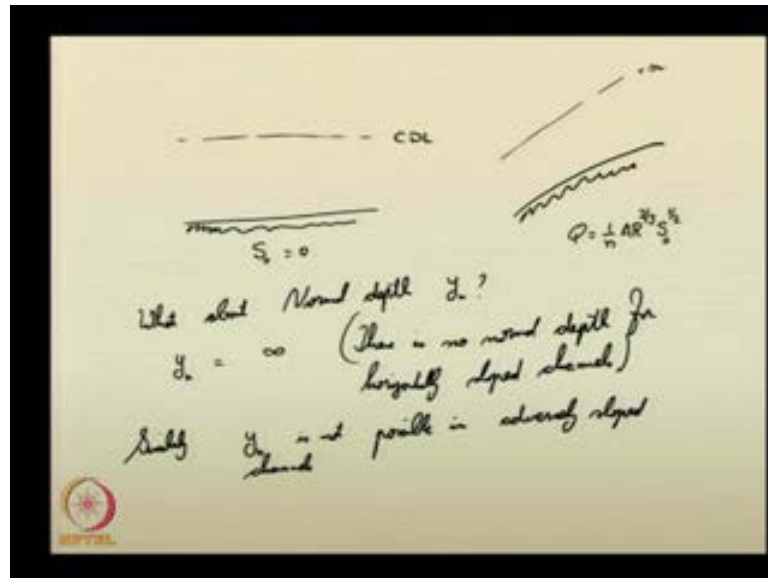 CDL
S₀ = 0
Q = 1/n AR^2/3 S₀^1/2
What about Normal depth yₙ?
yₙ = ∞ (There is no normal depth for
horizontally sloped channels)
yₙ is not possible in adversely sloped
channel
NPTEL